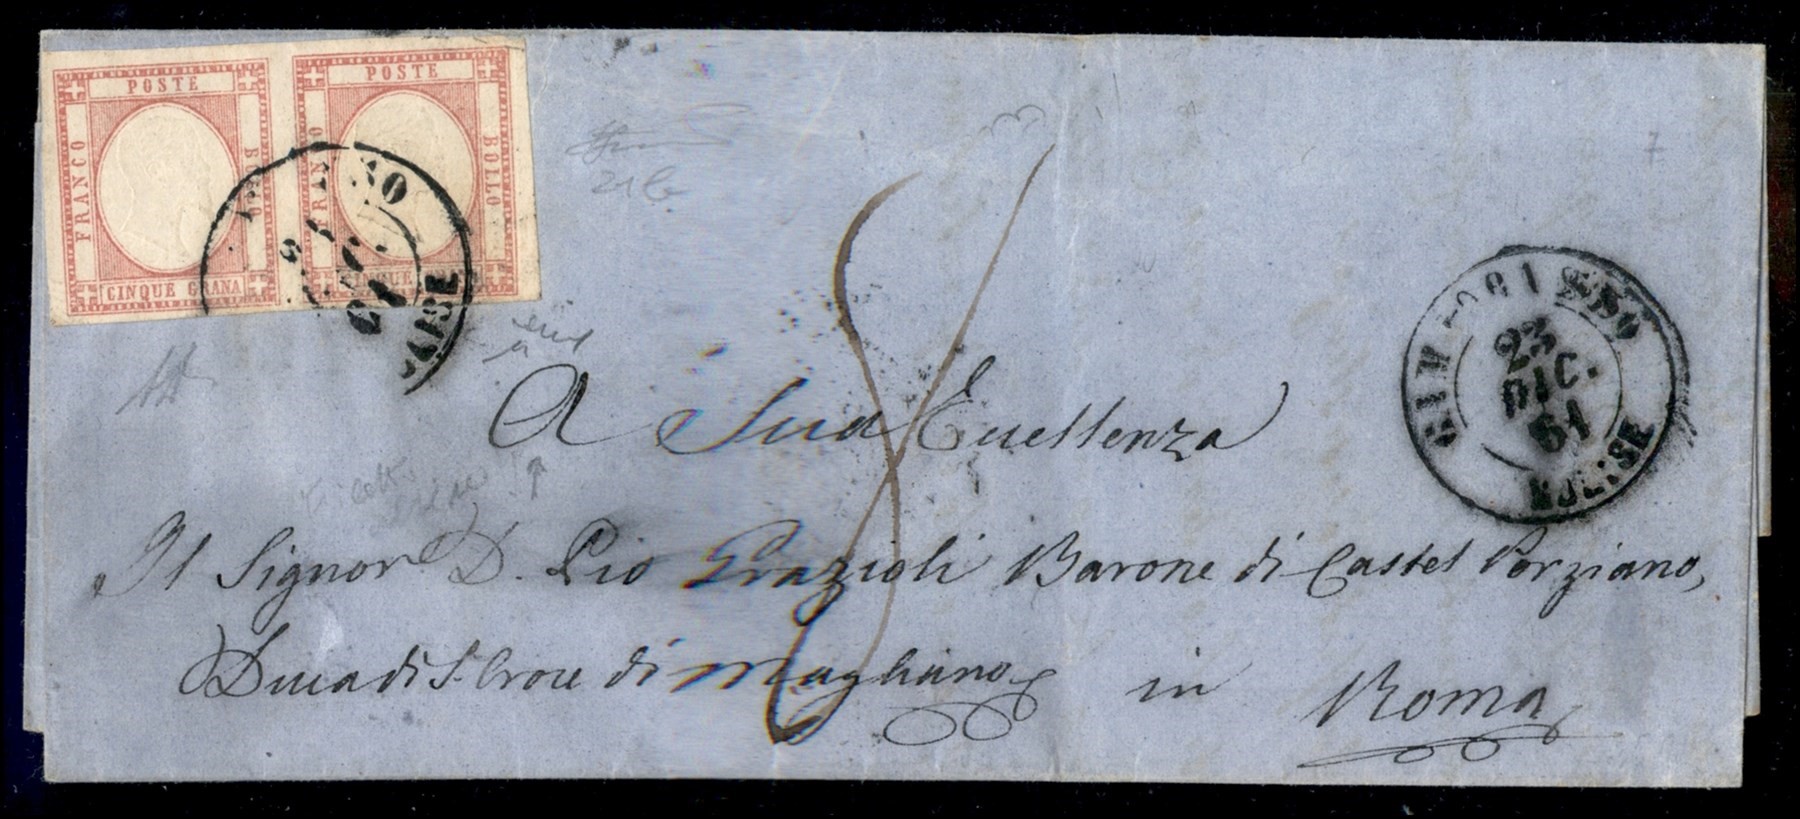 POSTE
FRANCO
BOLLO
CINQUE GRANA
POSTE
FRANCO
BOLLO
CINQUE
61
23
DIC.
61
MOLISE
8
7
A Sua Eccellenza
Il Signor D. Pio Grazioli Barone di Castel Porziano,
Duca di S. Croce di Magliano
in Roma